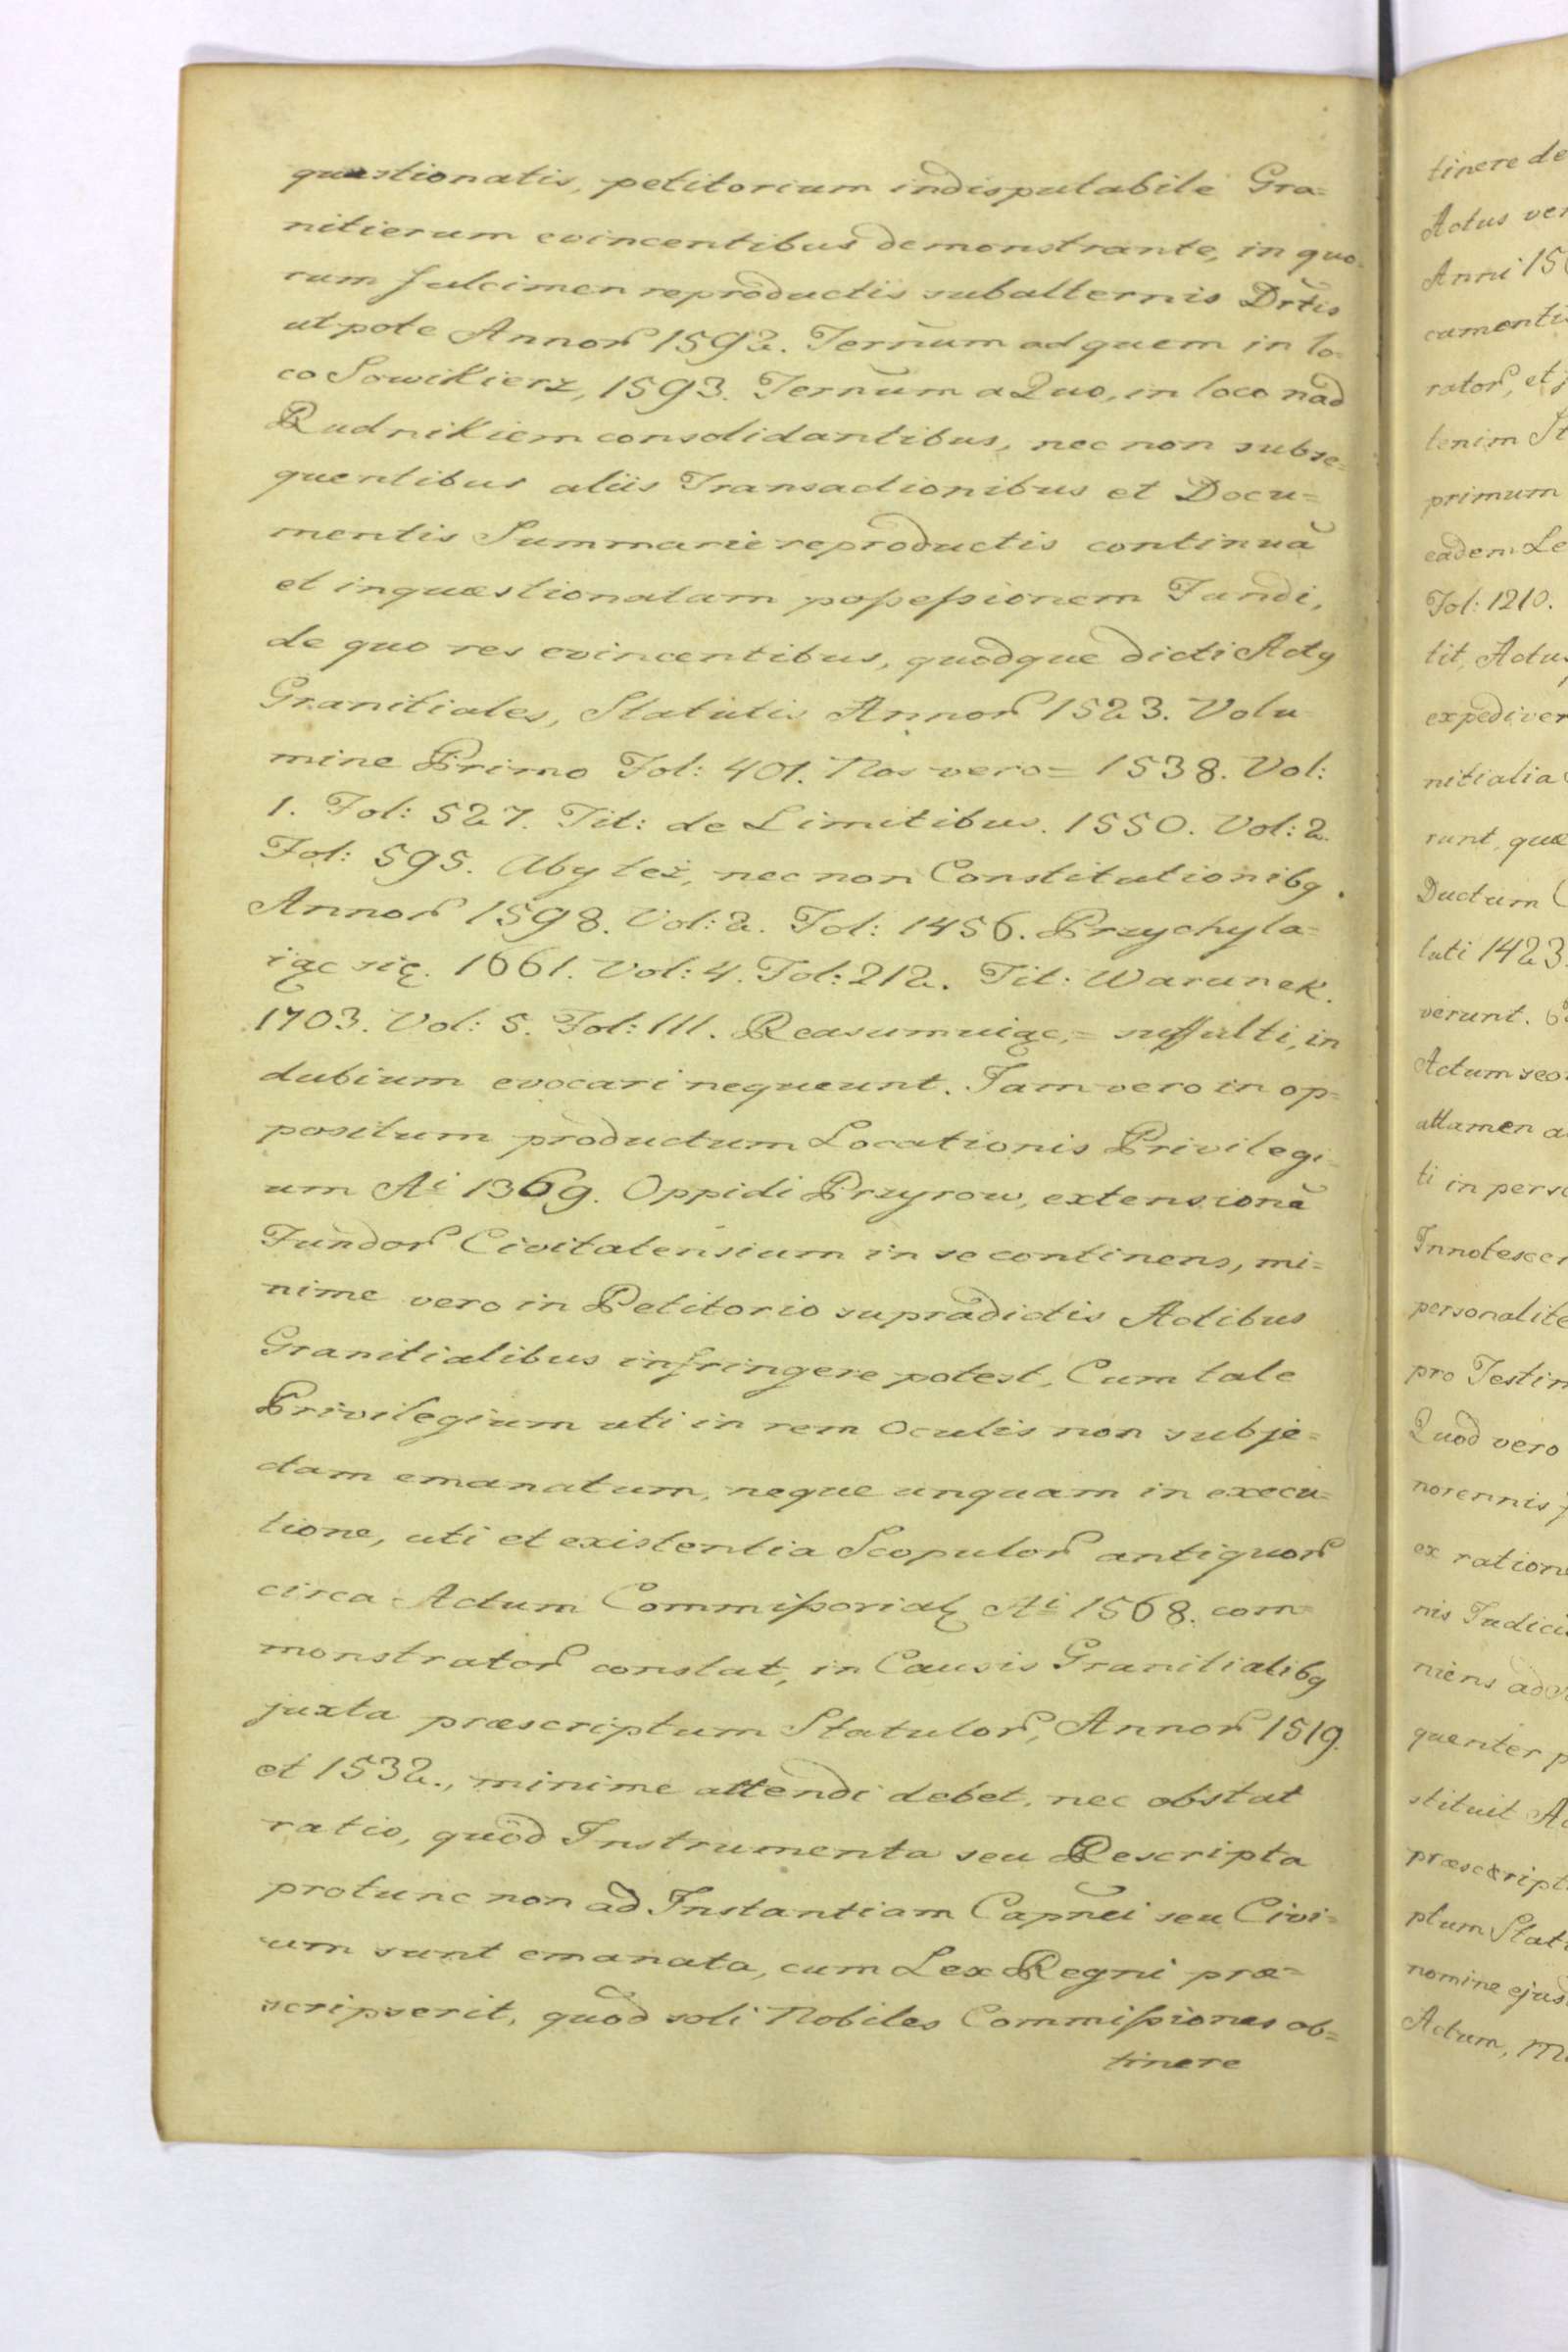 quæstionatis, petitorium indisputabile Gra=
nitierum evincentibus demonstrante, in quo=
rum fulcimen reproductis subalternis Drtis
utpote Annor 1592. Ternũm ad quem in lo=
co Sowikierz, 1593. Ternũm a Quo, in loco nad
Rudnikiem consolidantibus, nec non subse=
quentibus aliis Transactionibus et Docu=
mentis Summarie reproductis continuã
et inquæstionatam poſseſsionem Fundi,
de quo res evincentibus, quodque dicti Actq
Granitiales, Statutis Annor 1523. Volu
mine Primo Fol: 401. Nos vero= 1538. Vol:
1. Fol: 527. Tit: de Limitibus. 1550. Vol: 2.
Fol: 595. Aby też, nec non Constitutionibq.
Annor 1598. Vol: 2. Fol: 1456. Przychyla=
iąc się. 1661. Vol: 4. Fol: 212. Tit: Warunek.
1703. Vol: 5. Fol: 111. Reasumuiąc,= suffulti, in
dubium evocari nequeunt. Jam vero in op=
positum productum Locationis Privilegi=
um Ai 1369. Oppidi Przyrow, extensionẽ
Fundor Civitatensium in se continens, mi=
nime vero in Petitorio supradictis Actibus
Granitialibus infringere potest, Cum tale
Privilegium uti in rem Oculis non subje=
ctam emanatum, neque unquam in execu=
tione, uti et existentia Scopulor antiquor
circa Actum Commiſsorialq Ai 1568. com=
monstrator constat, in Causis Granitialibq
juxta præscriptum Statutor, Annor 1519.
et 1532., minime attendi debet, nec obstat
ratio, quod Instrumenta seu Rescripta
protunc non ad Instantiam Capnei seu Civi=
um sunt emanata, cum Lex Regni præ=
scripserit, quod soli Nobiles Commiſsiones ob=
tinere
tinere de
Actus ver
Anni 15
cumenti
rator, et
tenim St
primum
eadem Le
Fol: 1210.
tit, Actu
expediver
nitialia
runt, quæ
Ductum
luti 1423.
verunt.
Actum seo
attamen a
ti in perso
Innotescer
personalite
pro Testim
Quod vero
norennis
ex ratione
nis Judici
niens ad
quenter p
stituit A
præscript
ptum Stat
nomine ejus
Actum, M